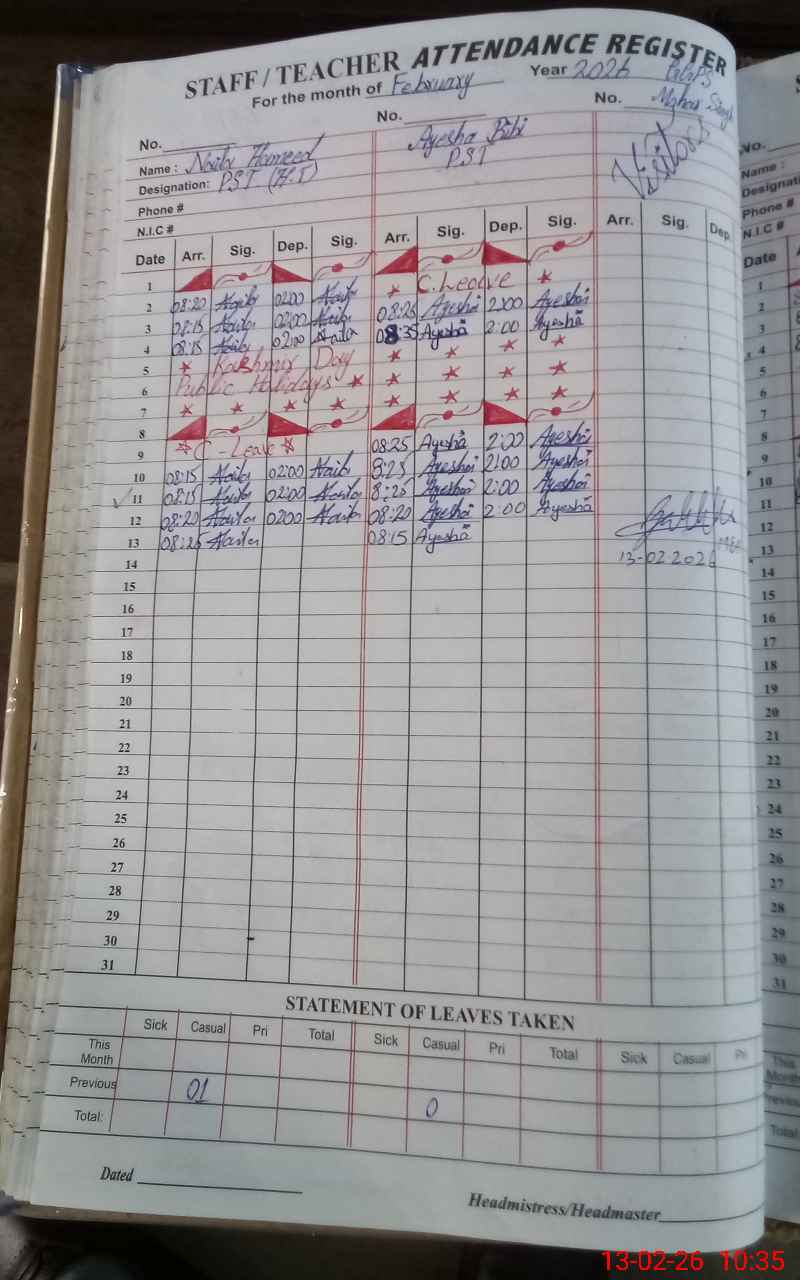 STAFF / TEACHER ATTENDANCE REGISTER
For the month of February Year 2026 GGPS
No. No. No. Mghar Singh
Name : Naila Hameed Ayesha Bibi Visitors
Designation: PST (H.T) PST
Phone #
N.I.C #
Date Arr. Sig. Dep. Sig. Arr. Sig. Dep. Sig. Arr. Sig. Dep.
1
2 08:20 Naila 02:00 Naila * C. Leave *
3 08:15 Naila 02:00 Naila 08:25 Ayesha 2:00 Ayesha
4 08:15 Naila 02:00 Naila 08:35 Ayesha 2:00 Ayesha
5 * Kashmir Day * * * *
6 Public Holidays * * * * *
7 * * * * * * * *
8
9 * C-Leave * 08:25 Ayesha 2:00 Ayesha
10 08:15 Naila 02:00 Naila 8:25 Ayesha 2:00 Ayesha
11 08:15 Naila 02:00 Naila 8:25 Ayesha 2:00 Ayesha
12 08:20 Naila 02:00 Naila 08:20 Ayesha 2:00 Ayesha
13 08:25 Naila 08:15 Ayesha
14 13-02-2026
15
16
17
18
19
20
21
22
23
24
25
26
27
28
29
30
31
STATEMENT OF LEAVES TAKEN
Sick Casual Pri Total Sick Casual Pri Total Sick Casual Pri
This Month
Previous 01 0
Total:
Dated
Headmistress/Headmaster
13-02-26 10:35